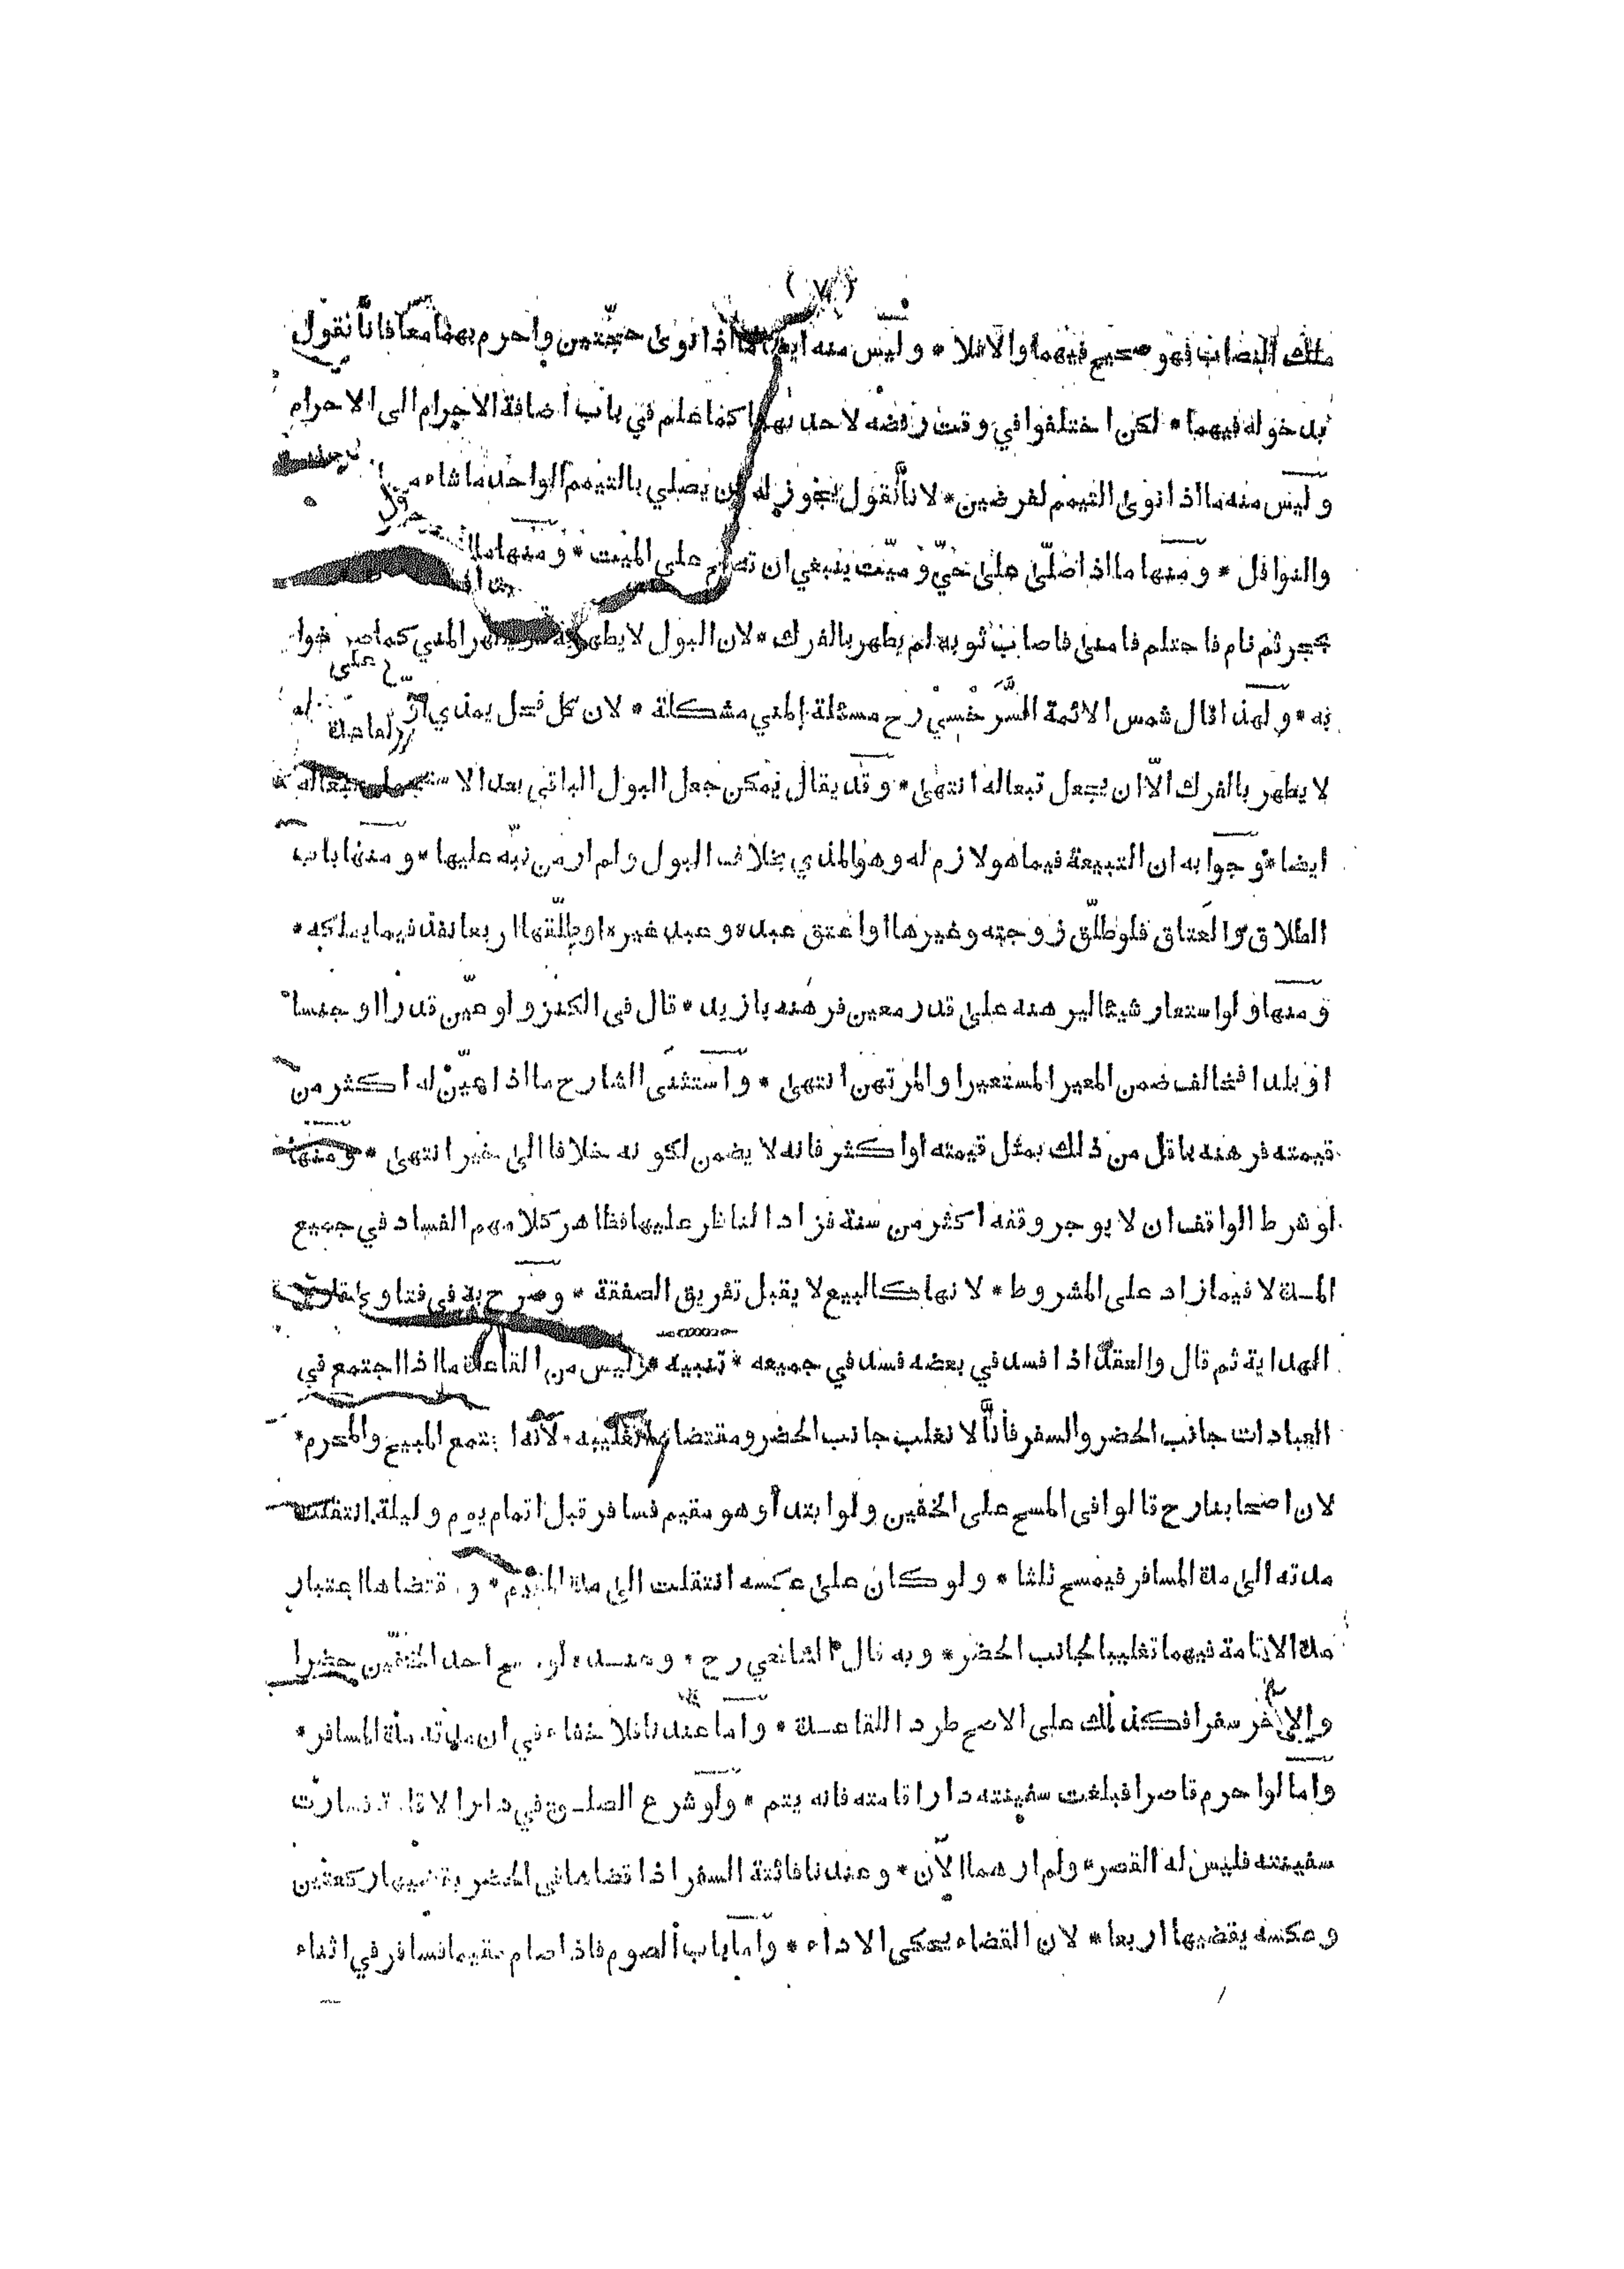 ملك النصاب فهو صحيح فيهما والا فلا * وليس منه ايضا ما اذا نوى حجتين واحرم بهما معا فانا نقول
بدخوله فيهما * لكن اختلفوا في وقت رفضه لاحدهما كما علم في باب اضافة الاحرام الى الاحرام
وليس منه ما اذا نوى التيمم لفرضين * لانا نقول يجوز له ان يصلي بالتيمم الواحد ما شاء من
والنوافل * ومنها ما اذا صلّى على حيّ وميّت ينبغي ان تصح على الميت * ومنها
بحجر ثم نام فاحتلم فامنى فاصاب ثوبه لم يطهر بالفرك * لان البول لا يطهر به المني كما
به * ولهذا قال شمس الائمة السَّرخسي رح مسئلة المني مشكلة * لان كل فحل يمذي
لا يطهر بالفرك الّا ان يجعل تبعا له انتهى * وقد يقال يمكن جعل البول الباقي بعد الاستجمار تبعا له
ايضا * وجوابه ان التبعية فيما هو لازم له وهو المذي بخلاف البول ولم ار من نبّه عليها * ومنها باب
الطلاق والعتاق فلو طلّق زوجته وغيرها او اعتق عبده وعبد غيره او طلّقها اربعا نفذ فيما يملكه *
ومنها ولو استعار شيئا ليرهنه على قدر معين فرهنه بازيد * قال في الكنز ولو عيّن قدرا او جنسا
او بلدا فخالف ضمن المعير المستعير او المرتهن انتهى * واستثنى الشارح ما اذا عيّن له اكثر من
قيمته فرهنه باقل من ذلك بمثل قيمته او اكثر فانه لا يضمن لكونه خلافا الى خير انتهى * ومنها
لو شرط الواقف ان لا يوجر وقفه اكثر من سنة فزاد الناظر عليها فظاهر كلامهم الفساد في جميع
المدة لا فيما زاد على المشروط * لانها كالبيع لا يقبل تفريق الصفقة * وصرح به في فتاوى قارئ
الهداية ثم قال والعقد اذا فسد في بعضه فسد في جميعه * تنبيه * وليس من القاعدة ما اذا اجتمع في
العبادات جانب الحضر والسفر فأنّا لا نغلب جانب الحضر ومقتضاها تغليبه * لانه اجتمع المبيح والمحرم *
لان اصحابنا رح قالوا في المسح على الخفين ولو ابتدأ وهو مقيم فسافر قبل اتمام يوم وليلة انتقلت
مدته الى مدة المسافر فيمسح ثلثا * ولو كان على عكسه انتقلت الى مدة المقيم * ومقتضاها اعتبار
مدة الاقامة فيهما تغليبا لجانب الحضر * وبه قال الشافعي رح * وعنده لو مسح احد الخفّين حضرا
والآخر سفرا فكذلك على الاصح طردا للقاعدة * واما عندنا فلا خفاء في ان مدته مدة المسافر *
واما لو احرم قاصرا فبلغت سفينته دار اقامته فانه يتم * ولو شرع الصلوة في دار الاقامة فسارت
سفينته فليس له القصر * ولم ار هما الآن * وعندنا فائتة السفر اذا قضاها في الحضر يقضيها ركعتين
وعكسه يقضيها اربعا * لان القضاء يحكى الاداء * واما باب الصوم فاذا صام مقيما فسافر في اثناء